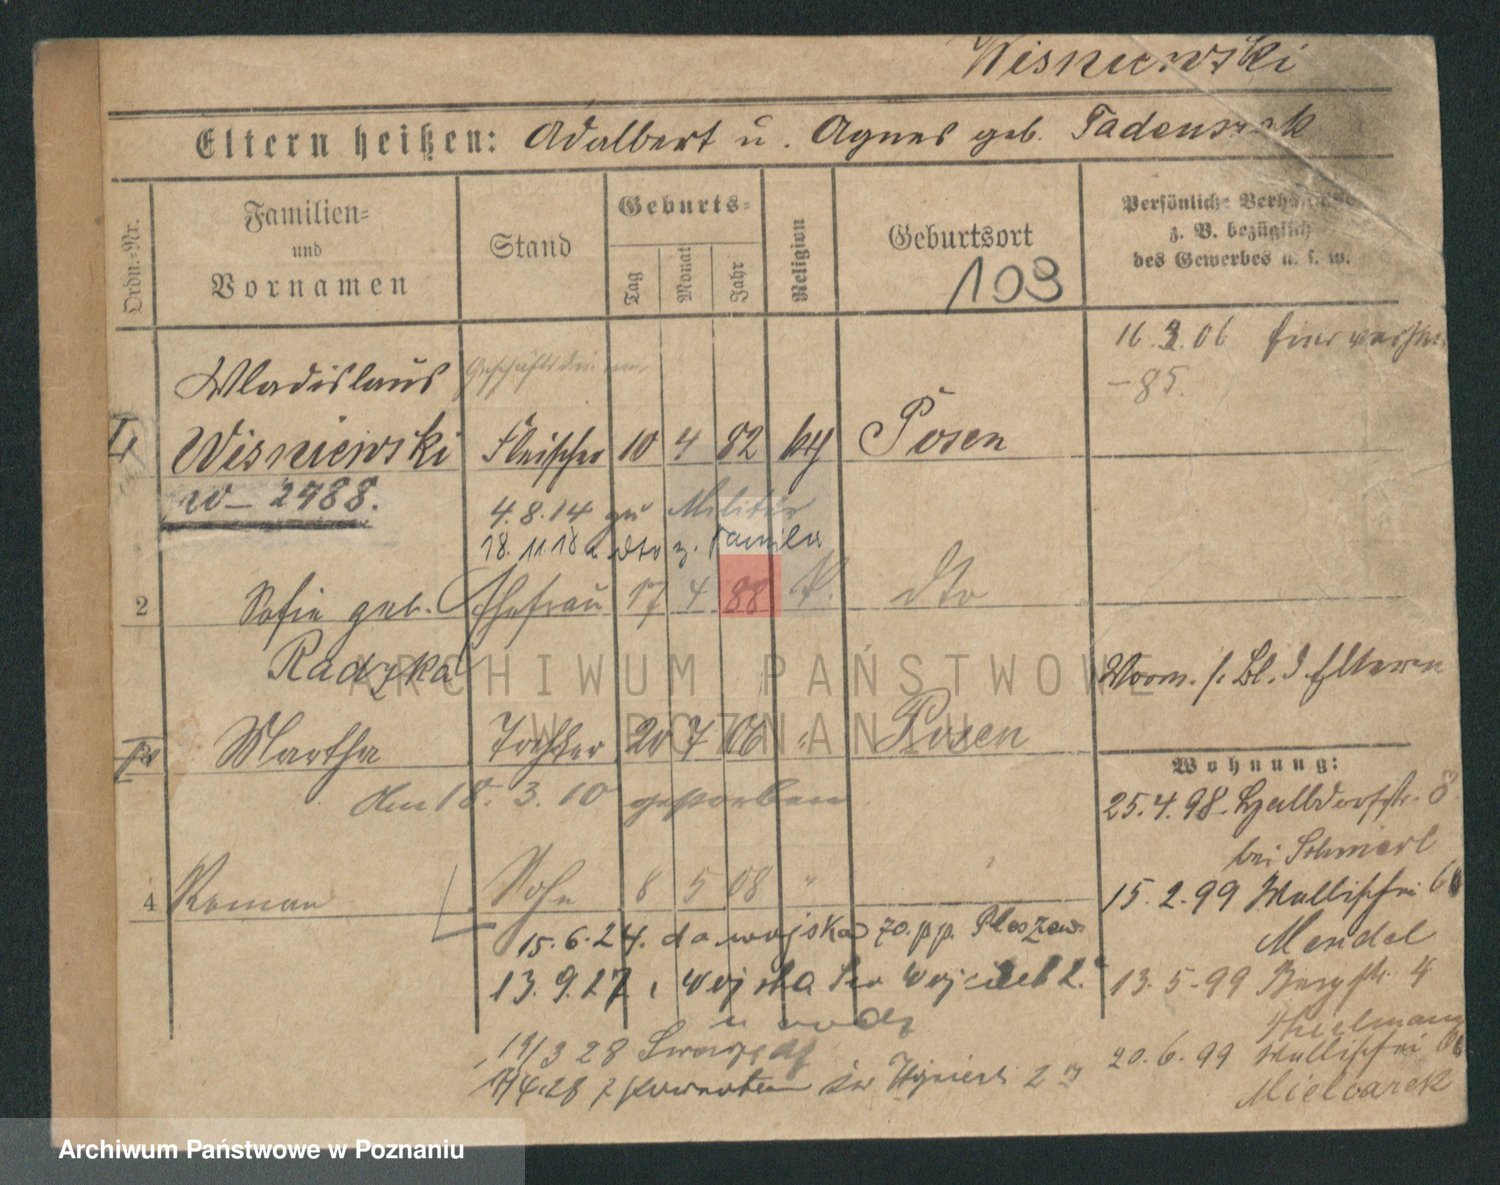 Wisniewski
Eltern heißen: Adalbert u. Agnes geb. Tadeuszak
Ordn.-Nr.
Familien-
und
Vornamen
Stand
Geburts-
Tag
Monat
Jahr
Religion
Geburtsort
109
Persönliche
z. B. bezüglich
des Gewerbes u. s. w.
16. 06
-85.
Wladislaus
Wisniewski Fleischer 10 4 82 kth Posen
w- 2488.
4.8.14 zu Militär
18.11.18 dto z. Familie
2 Sofie geb. Ehefrau 17 4 88 k. dto
Radzka
Vorm. s. Bl. d. Eltern
Martha Tochter 20 7 06 " Posen
am 18. 3. 10 gestorben
Wohnung:
25.4.98. Halbdorfstr. 8
bei
15.2.99 Wallischei
Mendel
4 Roman Sohn 8 5 08 "
15.6.24. do wojska 70. p.p. Pleszew
13.9.27 z wojska
13.5.99 Bergstr. 4
19/3 28
20.6.99 Wallischei
17/4.28 z powrotem
Mielcarek
ARCHIWUM PAŃSTWOWE
W POZNANIU
Archiwum Państwowe w Poznaniu